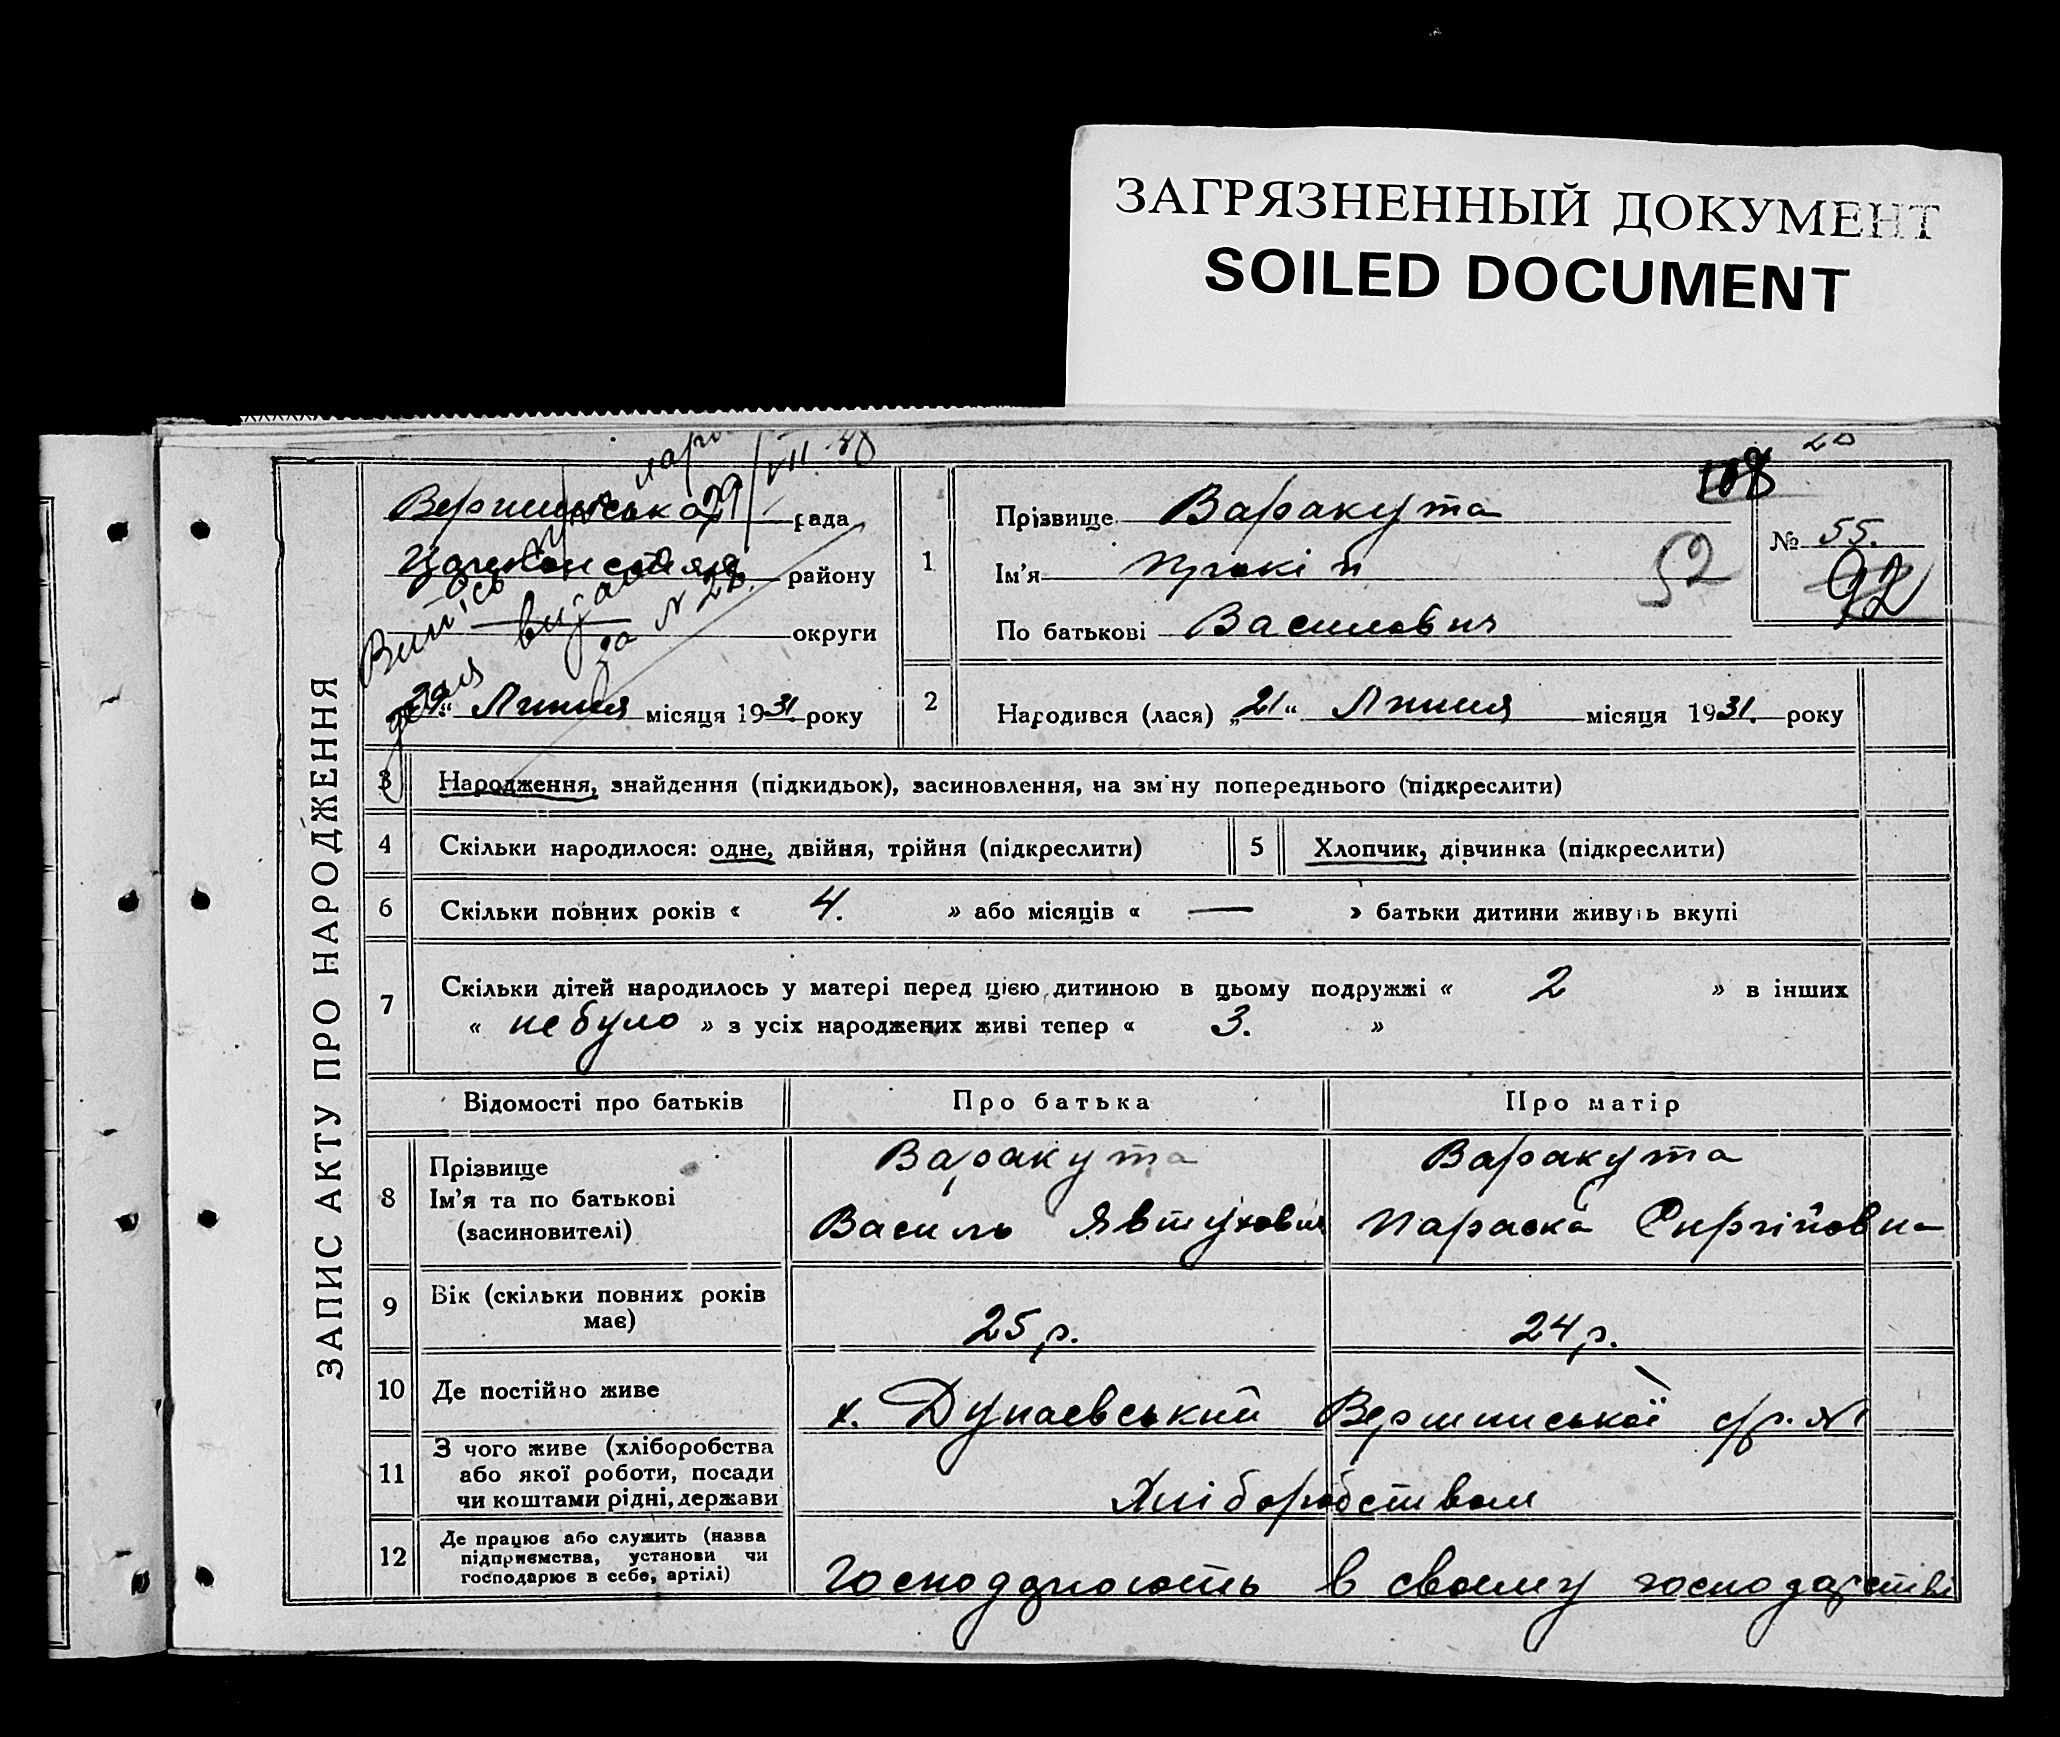 ЗАГРЯЗНЕННЫЙ ДОКУМЕНТ
SOILED DOCUMENT
ЗАПИС АКТУ ПРО НАРОДЖЕННЯ
Вершинська рада
району
округи
29 VII
Випись
видано
за № 22
„29“ Липня місяця 1931 року
1
Прізвище Варакута
Ім'я Прокіп
По батькові Василович
108
20
52
№ 55.
92
2
Народився (лася) „21“ Липня місяця 1931. року
3 Народження, знайдення (підкидьок), засиновлення, на зміну попереднього (підкреслити)
4 Скільки народилося: одне, двійня, трійня (підкреслити) 5 Хлопчик, дівчинка (підкреслити)
6 Скільки повних років « 4. » або місяців « — » батьки дитини живуть вкупі
7 Скільки дітей народилось у матері перед цією дитиною в цьому подружжі « 2 » в інших
« не було » з усіх народжених живі тепер « 3. »
Відомості про батьків Про батька Про матір
8 Прізвище Варакута Варакута
Ім'я та по батькові Василь Явтухович Параска Сиргійовна
(засиновителі)
9 Вік (скільки повних років
має) 25 р. 24 р.
10 Де постійно живе х. Дунаєвський Вершинської с/р.
11 З чого живе (хліборобства
або якої роботи, посади
чи коштами рідні, держави Хліборобством
12 Де працює або служить (назва
підприємства, установи чи
господарює в себе, артілі) Господарюють в своєму господарстві